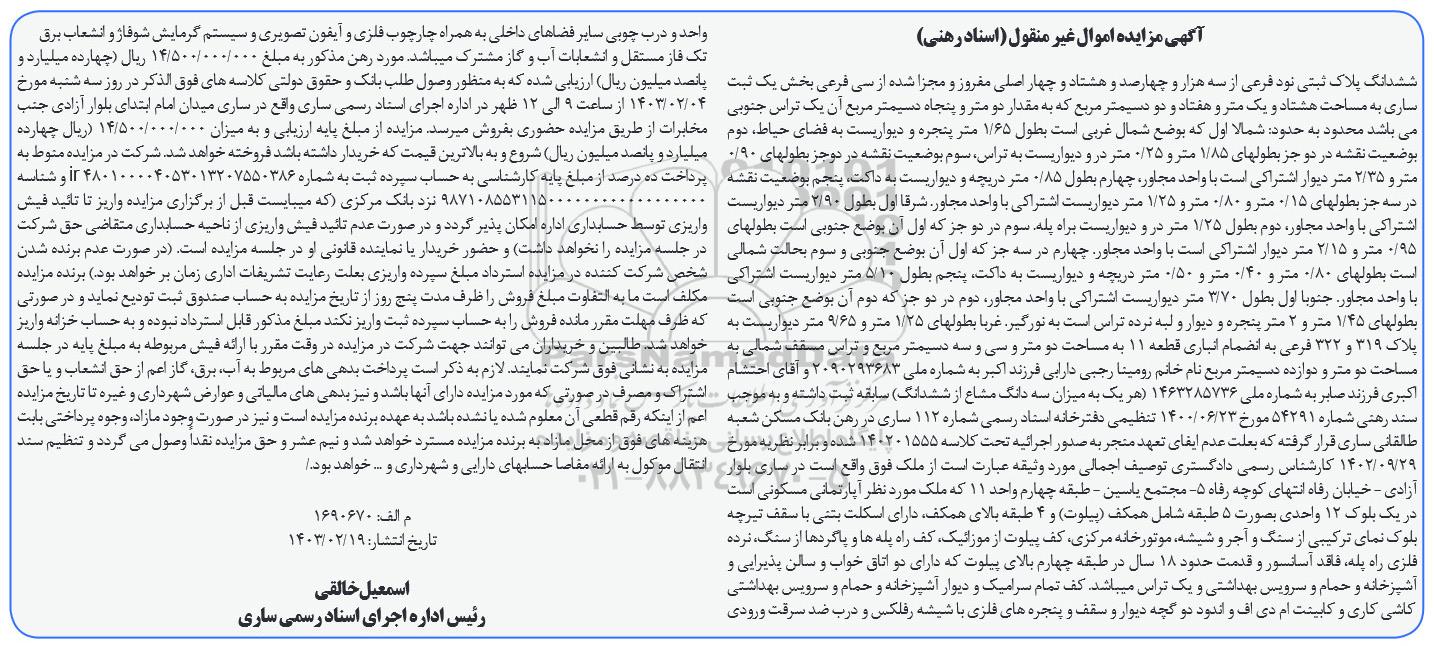 آگهی مزایده اموال غیر منقول (اسناد رهنی)
ششدانگ پلاک ثبتی نود فرعی از سه هزار و چهارصد و هشتاد و چهار اصلی مفروز و مجزا شده از سی فرعی بخش یک ثبت
ساری به مساحت هشتاد و یک متر و هفتاد و دو دسیمتر مربع که به مقدار دو متر و پنجاه دسیمتر مربع آن یک تراس جنوبی
می باشد محدود به حدود: شمالا اول که بوضع شمال غربی است بطول ۱/۶۵ متر پنجره و دیواریست به فضای حیاط، دوم
بوضعیت نقشه در دو جز بطولهای ۱/۸۵ متر و ۰/۲۵ متر در و دیواریست به تراس، سوم بوضعیت نقشه در دوجز بطولهای ۰/۹۰
متر و ۲/۳۵ متر دیوار اشتراکی است با واحد مجاور، چهارم بطول ۰/۸۵ متر دریچه و دیواریست به داکت، پنجم بوضعیت نقشه
در سه جز بطولهای ۰/۱۵ متر و ۰/۸۰ متر و ۱/۲۵ متر دیواریست اشتراکی با واحد مجاور. شرقا اول بطول ۲/۹۰ متر دیواریست
اشتراکی با واحد مجاور، دوم بطول ۱/۲۵ متر در و دیواریست براه پله. سوم در دو جز که اول آن بوضع جنوبی است بطولهای
۰/۹۵ متر و ۲/۱۵ متر دیوار اشتراکی است با واحد مجاور. چهارم در سه جز که اول آن بوضع جنوبی و سوم بحالت شمالی
است بطولهای ۰/۸۰ متر و ۰/۴۰ متر و ۰/۵۰ متر دریچه و دیواریست به داکت، پنجم بطول ۵/۱۰ متر دیواریست اشتراکی
با واحد مجاور. جنوبا اول بطول ۳/۷۰ متر دیواریست اشتراکی با واحد مجاور، دوم در دو جز که دوم آن بوضع جنوبی است
بطولهای ۱/۴۵ متر و ۲ متر پنجره و دیوار و لبه نرده تراس است به نورگیر. غربا بطولهای ۱/۲۵ متر و ۹/۶۵ متر دیواریست به
پلاک ۳۱۹ و ۳۲۲ فرعی به انضمام انباری قطعه ۱۱ به مساحت دو متر و سی و سه دسیمتر مربع و تراس مسقف شمالی به
مساحت دو متر و دوازده دسیمتر مربع نام خانم رومینا رجبی دارابی فرزند اکبر به شماره ملی ۲۰۹۰۲۹۳۶۸۳ و آقای احتشام
اکبری فرزند صابر به شماره ملی ۱۴۶۳۲۸۵۷۳۶ (هر یک به میزان سه دانگ مشاع از ششدانگ) سابقه ثبت داشته و به موجب
سند رهنی شماره ۵۴۲۹۱ مورخ ۱۴۰۰/۰۶/۲۳ تنظیمی دفترخانه اسناد رسمی شماره ۱۱۲ ساری در رهن بانک مسکن شعبه
طالقانی ساری قرار گرفته که بعلت عدم ایفای تعهد منجر به صدور اجرائیه تحت کلاسه ۱۴۰۲۰۱۵۵۵ شده و برابر نظریه مورخ
۱۴۰۲/۰۹/۲۹ کارشناس رسمی دادگستری توصیف اجمالی مورد وثیقه عبارت است از ملک فوق واقع است در ساری بلوار
آزادی – خیابان رفاه انتهای کوچه رفاه ۵- مجتمع یاسین – طبقه چهارم واحد ۱۱ که ملک مورد نظر آپارتمانی مسکونی است
در یک بلوک ۱۲ واحدی بصورت ۵ طبقه شامل همکف (پیلوت) و ۴ طبقه بالای همکف، دارای اسکلت بتنی با سقف تیرچه
بلوک نمای ترکیبی از سنگ و آجر و شیشه، موتورخانه مرکزی، کف پیلوت از موزائیک، کف راه پله ها و پاگردها از سنگ، نرده
فلزی راه پله، فاقد آسانسور و قدمت حدود ۱۸ سال در طبقه چهارم بالای پیلوت که دارای دو اتاق خواب و سالن پذیرایی و
آشپزخانه و حمام و سرویس بهداشتی و یک تراس میباشد. کف تمام سرامیک و دیوار آشپزخانه و حمام و سرویس بهداشتی
کاشی کاری و کابینت ام دی اف و اندود دو گچه دیوار و سقف و پنجره های فلزی با شیشه رفلکس و درب ضد سرقت ورودی
واحد و درب چوبی سایر فضاهای داخلی به همراه چارچوب فلزی و آیفون تصویری و سیستم گرمایش شوفاژ و انشعاب برق
تک فاز مستقل و انشعابات آب و گاز مشترک میباشد. مورد رهن مذکور به مبلغ ۱۴/۵۰۰/۰۰۰/۰۰۰ ریال (چهارده میلیارد و
پانصد میلیون ریال) ارزیابی شده که به منظور وصول طلب بانک و حقوق دولتی کلاسه های فوق الذکر در روز سه شنبه مورخ
۱۴۰۳/۰۲/۰۴ از ساعت ۹ الی ۱۲ ظهر در اداره اجرای اسناد رسمی ساری واقع در ساری میدان امام ابتدای بلوار آزادی جنب
مخابرات از طریق مزایده حضوری بفروش میرسد. مزایده از مبلغ پایه ارزیابی و به میزان ۱۴/۵۰۰/۰۰۰/۰۰۰ (ریال چهارده
میلیارد و پانصد میلیون ریال) شروع و به بالاترین قیمت که خریدار داشته باشد فروخته خواهد شد. شرکت در مزایده منوط به
پرداخت ده درصد از مبلغ پایه کارشناسی به حساب سپرده ثبت به شماره ir ۴۸۰۱۰۰۰۰۴۰۵۳۰۱۳۲۰۷۵۵۰۳۸۶ و شناسه
نزد بانک مرکزی (که میبایست قبل از برگزاری مزایده واریز تا تائید فیش
واریزی توسط حسابداری اداره امکان پذیر گردد و در صورت عدم تائید فیش واریزی از ناحیه حسابداری متقاضی حق شرکت
در جلسه مزایده را نخواهد داشت) و حضور خریدار یا نماینده قانونی او در جلسه مزایده است. (در صورت عدم برنده شدن
شخص شرکت کننده در مزایده استرداد مبلغ سپرده واریزی بعلت رعایت تشریفات اداری زمان بر خواهد بود.) برنده مزایده
مکلف است ما به التفاوت مبلغ فروش را ظرف مدت پنج روز از تاریخ مزایده به حساب صندوق ثبت تودیع نماید و در صورتی
که ظرف مهلت مقرر مانده فروش را به حساب سپرده ثبت واریز نکند مبلغ مذکور قابل استرداد نبوده و به حساب خزانه واریز
خواهد شد. طالبین و خریداران می توانند جهت شرکت در مزایده در وقت مقرر با ارائه فیش مربوطه به مبلغ پایه در جلسه
مزایده به نشانی فوق شرکت نمایند. لازم به ذکر است پرداخت بدهی های مربوط به آب، برق، گاز اعم از حق انشعاب و یا حق
اشتراک و مصرف در صورتی که مورد مزایده دارای آنها باشد و نیز بدهی های مالیاتی و عوارض شهرداری و غیره تا تاریخ مزایده
اعم از اینکه رقم قطعی آن معلوم شده یا نشده باشد به عهده برنده مزایده است و نیز در صورت وجود مازاد، وجوه پرداختی بابت
هزینه های فوق از محل مازاد به برنده مزایده مسترد خواهد شد و نیم عشر و حق مزایده نقداً وصول می گردد و تنظیم سند
انتقال موکول به ارائه مفاصا حسابهای دارایی و شهرداری و ... خواهد بود./
م الف: ۱۶۹۰۶۷۰
تاریخ انتشار: ۱۴۰۳/۰۲/۱۹
اسمعیل خالقی
رئیس اداره اجرای اسناد رسمی ساری
ParsNamadData
۰۲۱-۸۸۳۴۹۶۷۰-۵